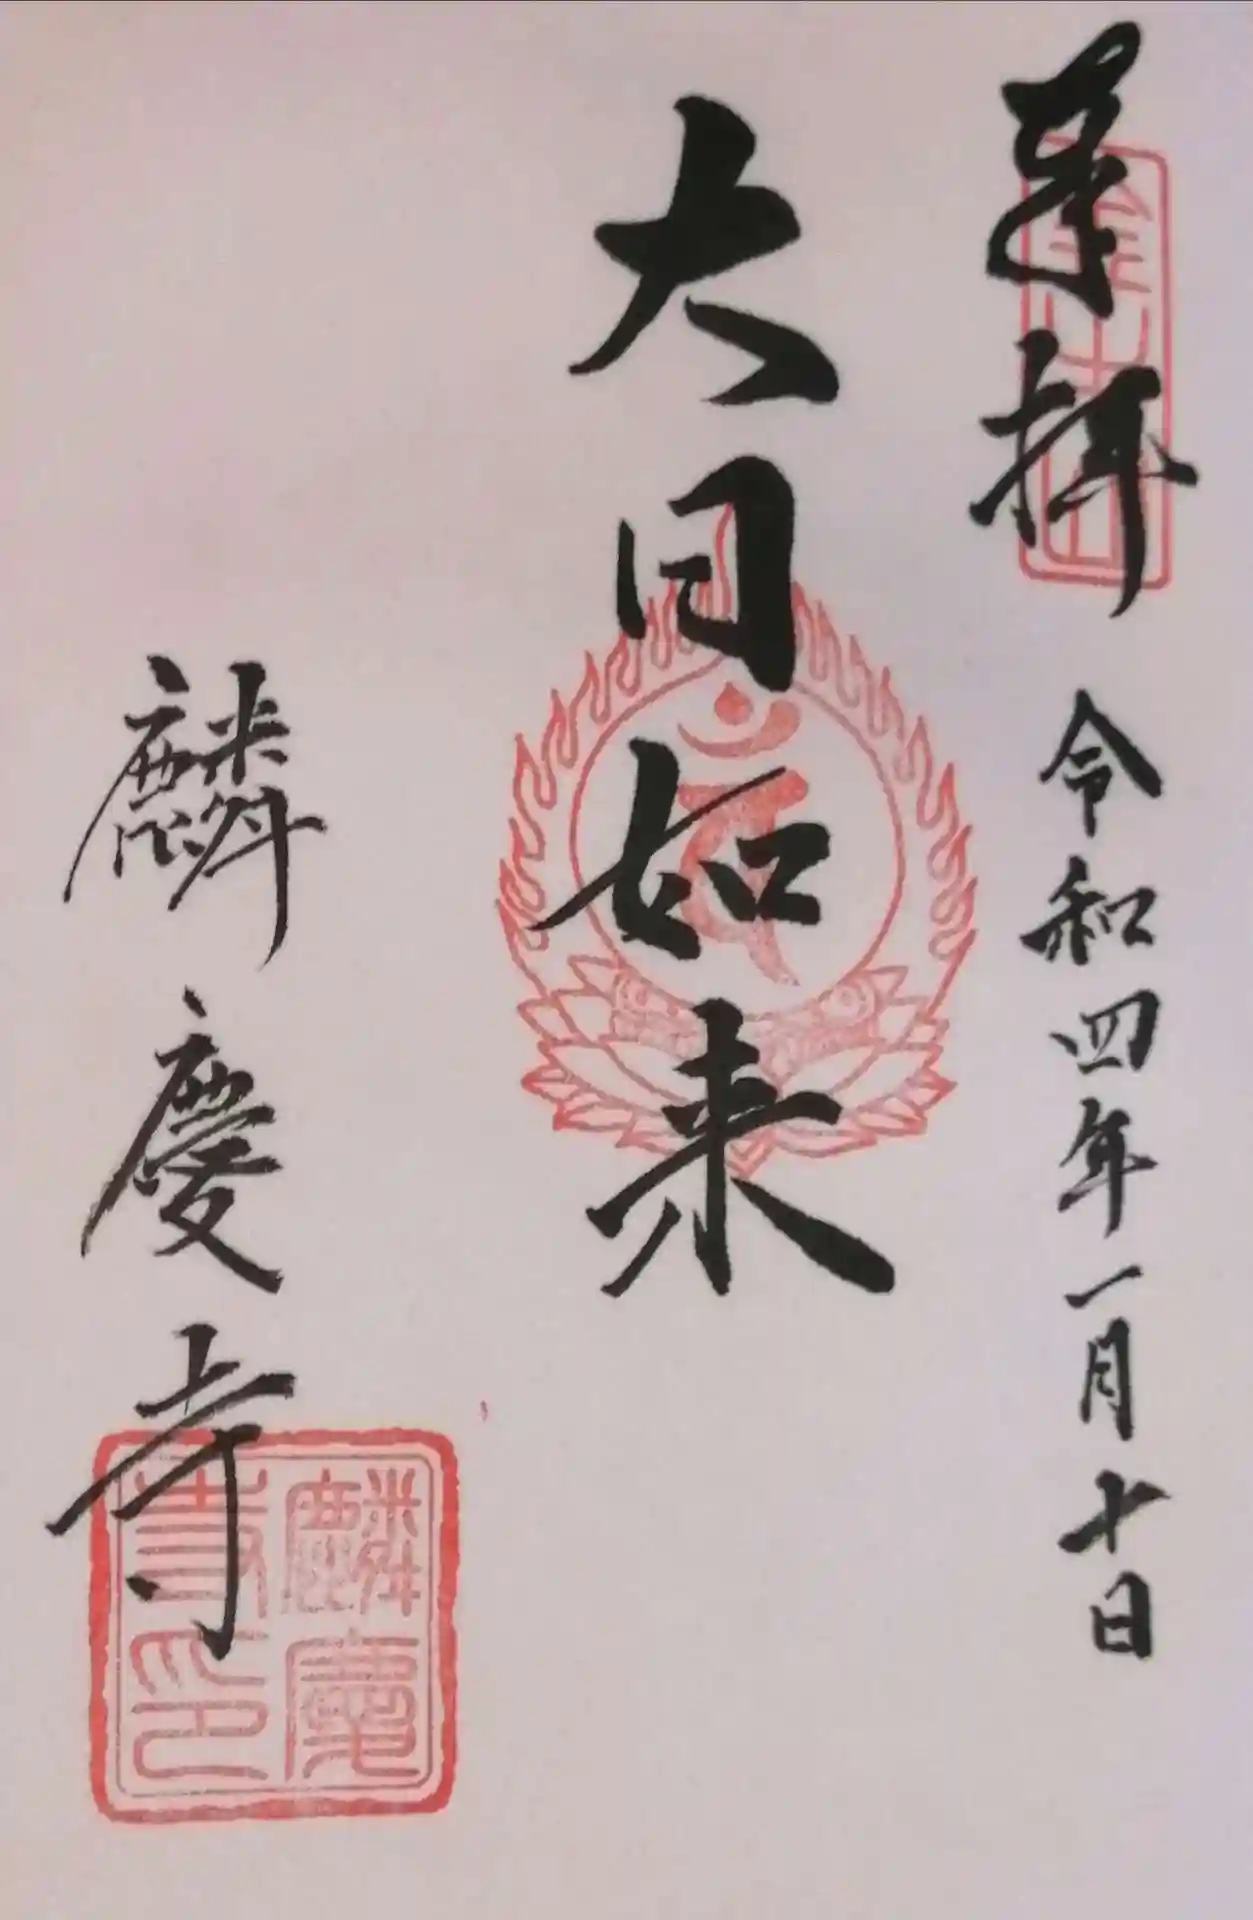 奉拝
令和四年一月十日
大日如来
麟慶寺
麟慶
寺印